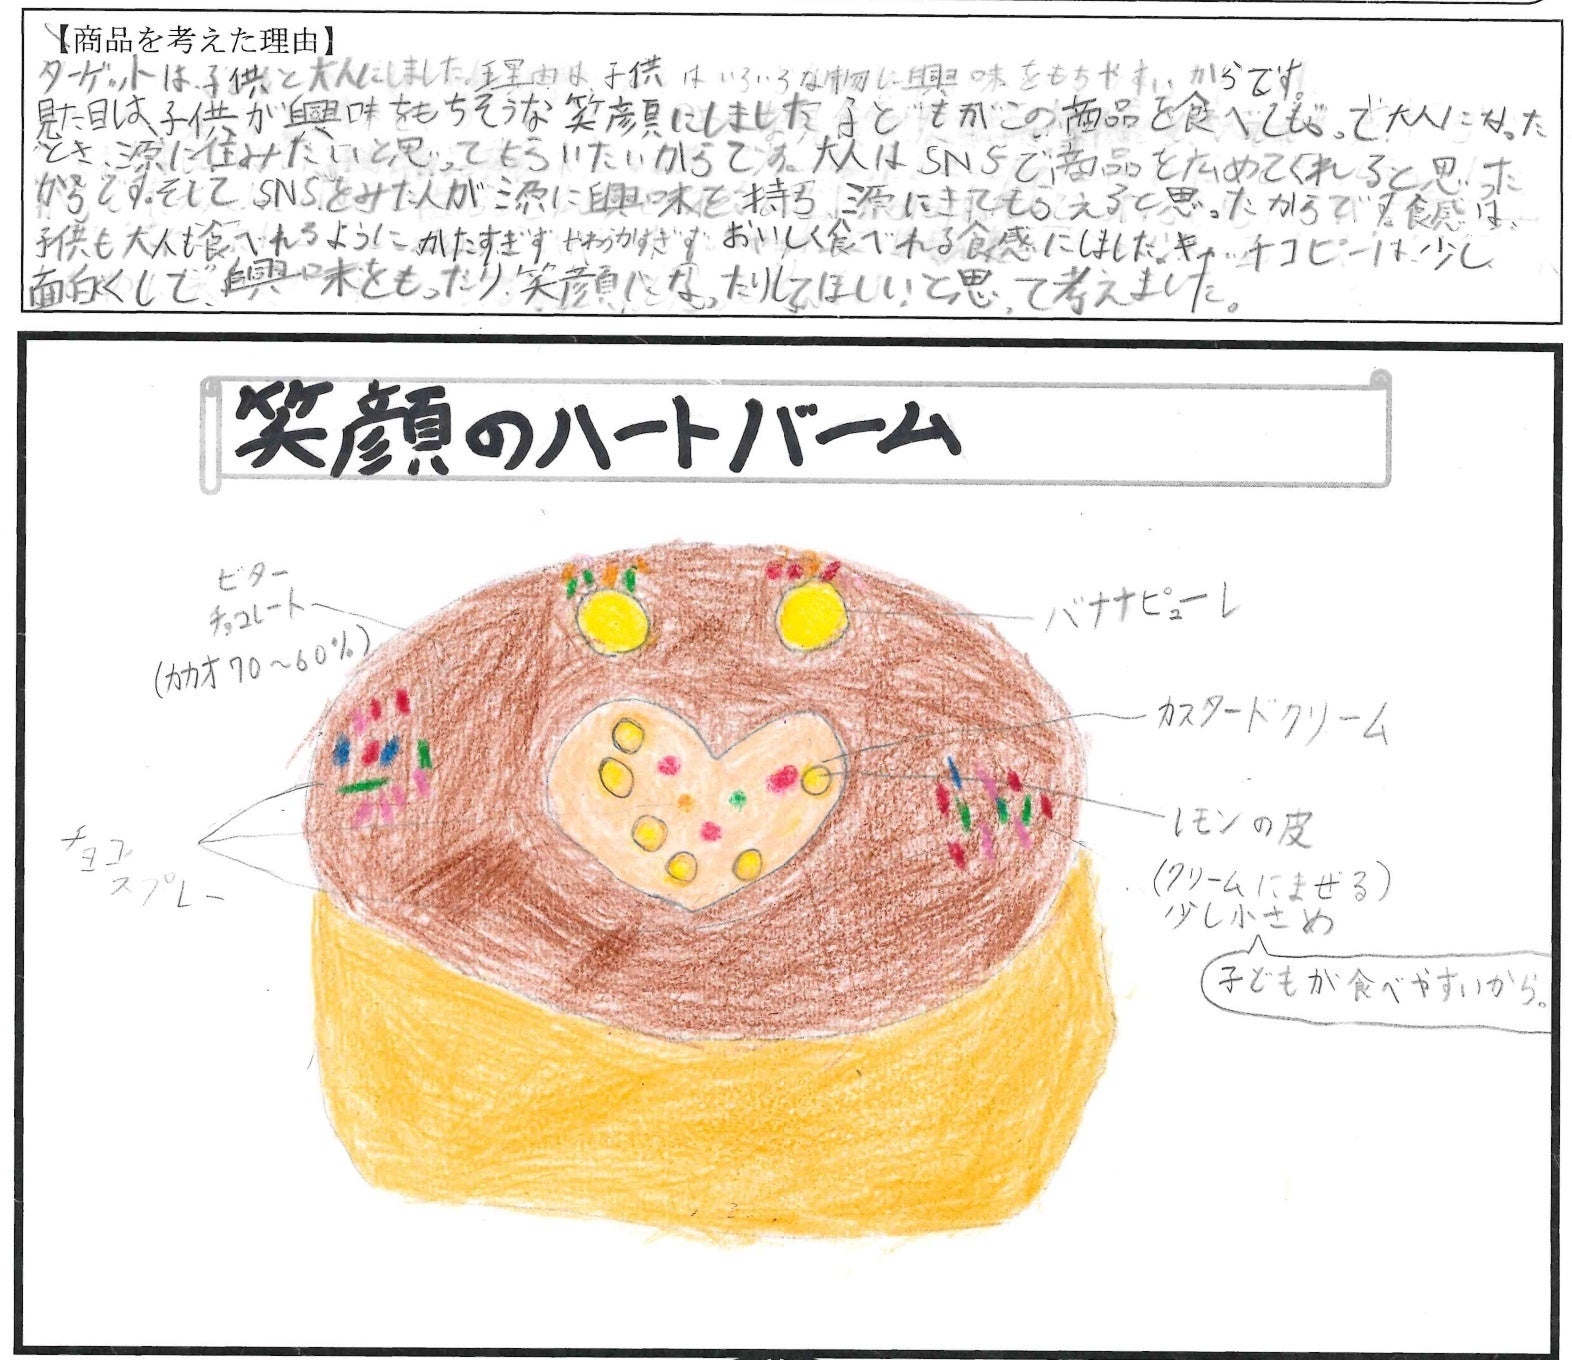 【商品を考えた理由】
ターゲットは子供と大人にしました。理由は子供はいろいろな物に興味をもちやすいからです。
見た目は、子供が興味をもちそうな笑顔にしました。子どもがこの商品を食べてもらって大人になった
とき、源に住みたいと思ってもらいたいからです。大人はSNSで商品を広めてくれると思った
からです。そしてSNSをみた人が源に興味を持ち源にきてもらえると思ったからです。食感は、
子供も大人も食べれるようにかたすぎずやわらかすぎずおいしく食べれる食感にしました。キャッチコピーは少し
面白くして、興味をもったり、笑顔になったりしてほしいと思って考えました。
笑顔のハートバーム
ビター
チョコレート
(カカオ70～60%)
バナナピューレ
カスタードクリーム
レモンの皮
(クリームにまぜる)
少し小さめ
子どもが食べやすいから。
チョコ
スプレー